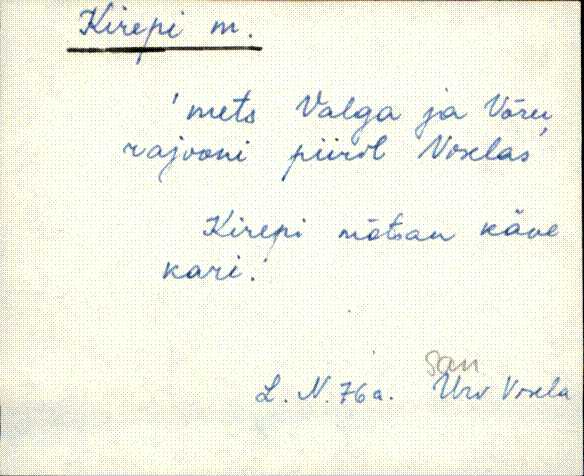 Kirepi m.
'mets Valga ja Võru
rajooni piiril Voxelas'
Kirepi mõtsan käve
kari.
san
L. N. 76a. Urv Voxela